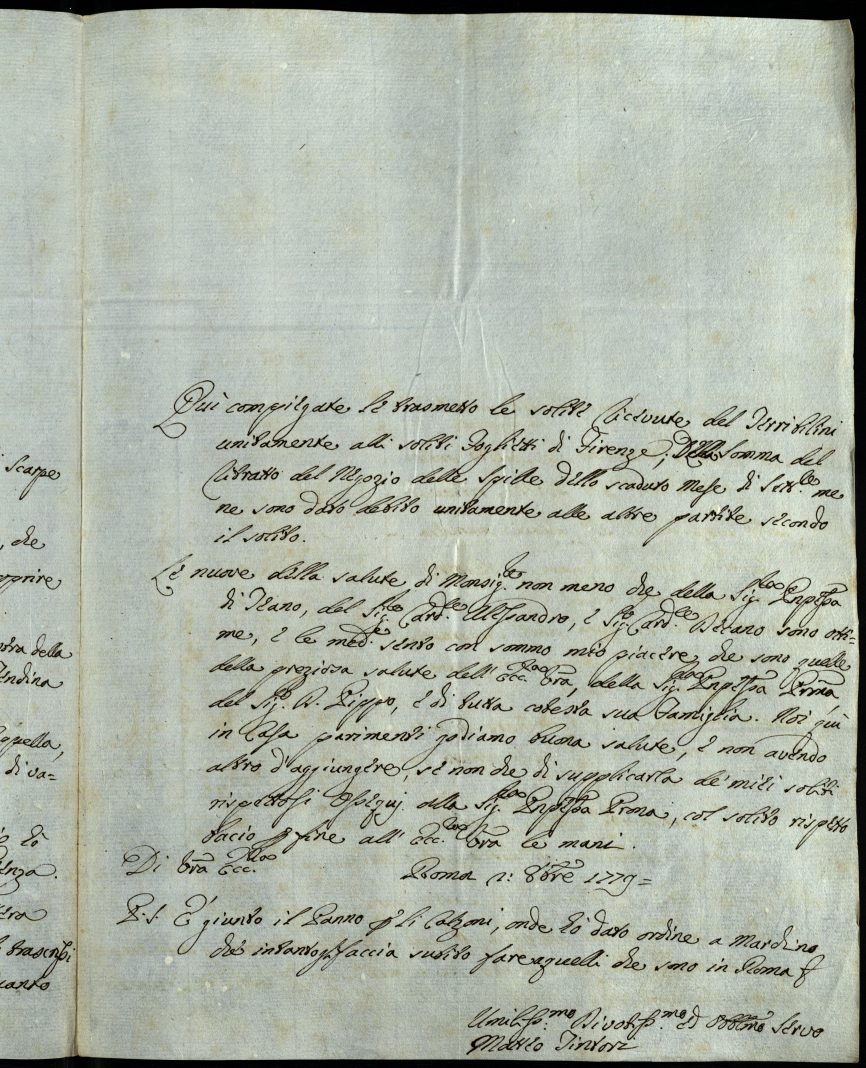 i scarpe
, che
oprire
ndina
appella,
di va=
o ho
enza.
trascrissi
uanto
Quì compiegate Le trasmetto le solite ricevute del Terribilini
unitamente alli soliti Foglietti di Firenze; Della Somma del
ritratto del Negozio delle Spille dello scaduto Mese di Sett.bre me
ne sono dato debito unitamente alle altre partite secondo
il solito.
Le nuove della salute di Monsig.re non meno che della Sig.ra Pnpessa
di Teano, del Sig.r Card.le Alessandro, e Sig.r Card.le Decano sono otti=
me, e le med.e sento con sommo mio piacere che sono quelle
della preziosa salute dell' Ecc.za Vra, della Sig.ra Pnpessa Prona
del Sig.r D. Pippo, e di tutta cotesta sua Famiglia. Noi quì
in Casa parimenti godiamo buona salute, e non avendo
altro d'aggiungere, se non che di supplicarla de' miei soliti
rispettosi Ossequj alla Sig.ra Pnpessa Prona, col solito rispetto
bacio per fine all' Ecc.za Vra le mani.
Di Vra Ecc.za Roma 2: 8bre 1779=
P.S. E' giunto il Panno p li Calzoni, onde hò dato ordine a Marchino
che intanto faccia subito fare quelli che sono in Roma
Umiliss.mo Divotiss.mo ed Obblmo Servo
Matteo Tintori